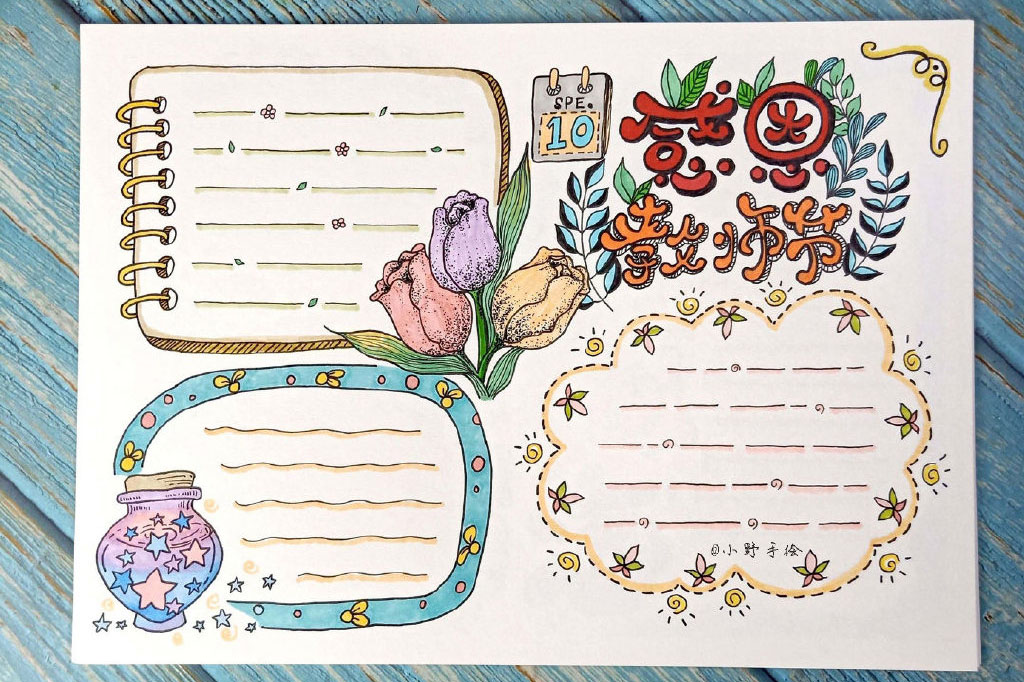 SPE.
10
感恩
教师节
@小野手绘